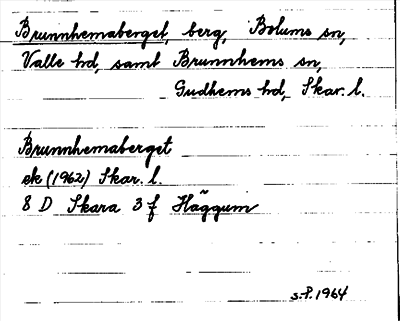 Brunnhemaberget, berg, Bolums sn,
Valle hd, samt Brunnhems sn,
Gudhems hd, Skar. l.
Brunnhemaberget
ek (1962) Skar. l.
8 D Skara 3 f Häggum
s.P. 1964